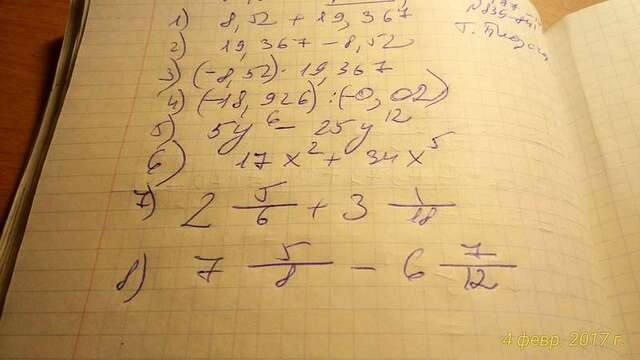 1) 8,52 + 19,367
2) 19,367 - 8,52
3) (-8,52) · 19,367
4) (-18,926) : (-0,02)
5) 5y⁶ - 25y¹²
6) 17x² + 34x⁵
7) 2 5/6 + 3 1/18
8) 7 5/8 - 6 7/12
4 февр. 2017 г.